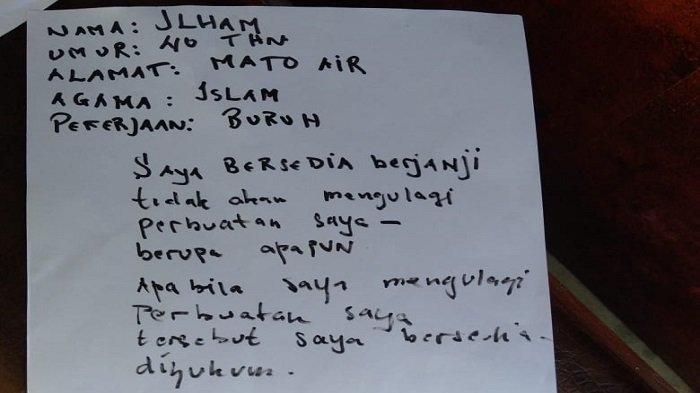 NAMA: ILHAM
UMUR: 40 THN
ALAMAT: MATO AIR
AGAMA: ISLAM
PEKERJAAN: BURUH
SAYA BERSEDIA berjanji
tidak akan mengulagi
perbuatan saya –
berupa apaPUN
Apabila saya mengulagi
Perbuatan saya
tersebut saya bersedia
dihukum.